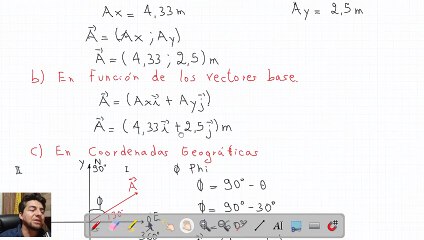 Ax = 4,33 m
Ay = 2,5 m
A = (Ax ; Ay)
A = (4,33 ; 2,5) m
b) En función de los vectores base.
A = (Ax i + Ay j)
A = (4,33 i + 2,5 j) m
c) En Coordenadas Geográficas
II
y
N
90°
I
Φ Phi
A
Φ = 90° - θ
Φ
30°
Φ = 90° - 30°
E
360°